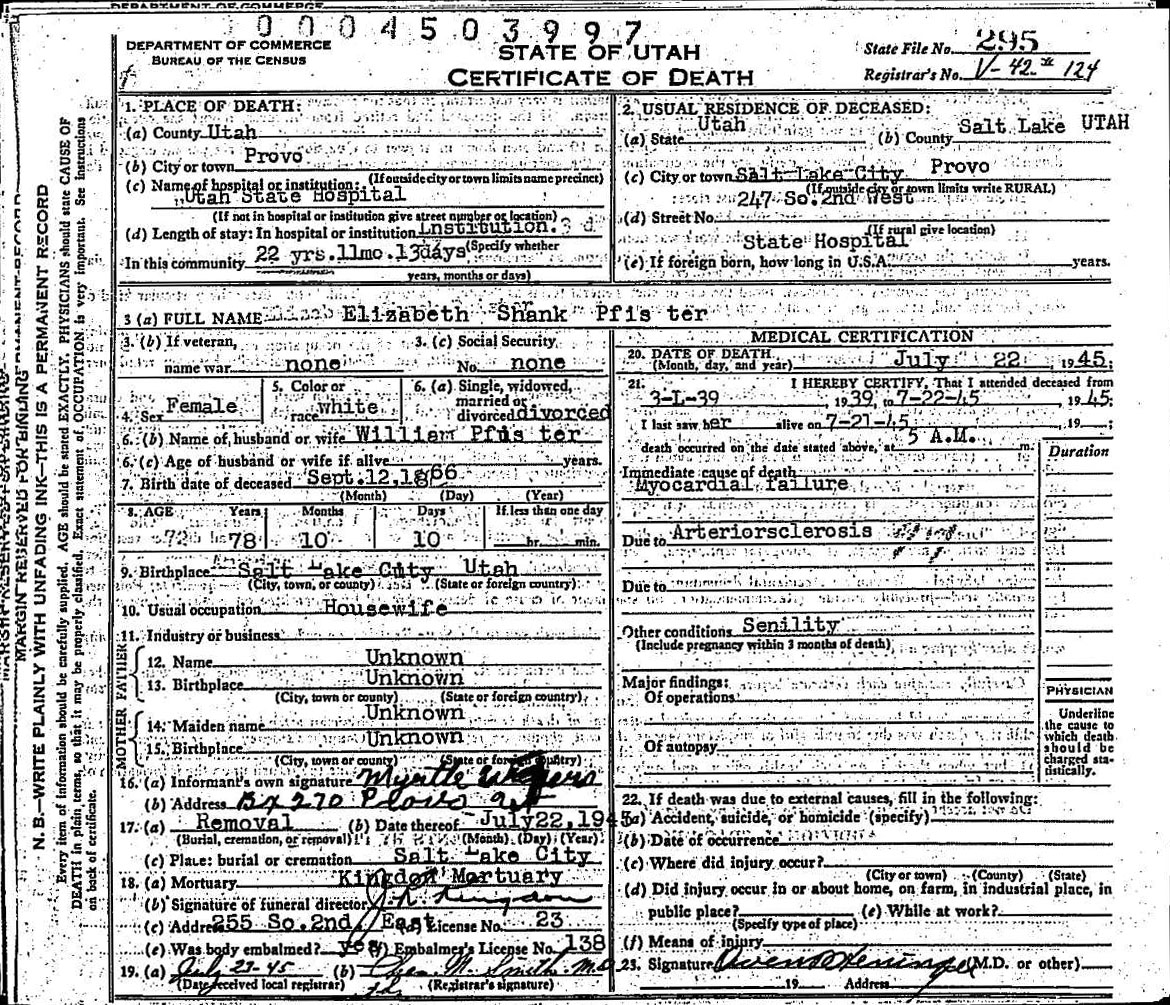 DEPARTMENT OF COMMERCE
0004503997
DEPARTMENT OF COMMERCE
BUREAU OF THE CENSUS
STATE OF UTAH
CERTIFICATE OF DEATH
State File No. 295
Registrar's No. V-42- 124
MARGIN RESERVED FOR BINDING
N. B.—WRITE PLAINLY WITH UNFADING INK—THIS IS A PERMANENT RECORD
Every item of information should be carefully supplied. AGE should be stated EXACTLY. PHYSICIANS should state CAUSE OF
DEATH in plain terms, so that it may be properly classified. Exact statement of OCCUPATION is very important. See instructions
on back of certificate.
1. PLACE OF DEATH:
(a) County Utah
(b) City or town Provo
(If outside city or town limits name precinct)
(c) Name of hospital or institution:
Utah State Hospital
(If not in hospital or institution give street number or location)
(d) Length of stay: In hospital or institution Institution. 3 d
(Specify whether
In this community 22 yrs.11mo.13days
years, months or days)
2. USUAL RESIDENCE OF DECEASED:
(a) State Utah (b) County Salt Lake UTAH
(c) City or town Salt Lake City Provo
(If outside city or town limits write RURAL)
247 So.2nd West
(d) Street No.
(If rural give location)
State Hospital
(e) If foreign born, how long in U.S.A. years.
3 (a) FULL NAME Elizabeth Shank Pfis ter
3. (b) If veteran,
name war none
3. (c) Social Security
No. none
4. Sex Female
5. Color or
race white
6. (a) Single, widowed,
married or
divorced divorced
6. (b) Name of husband or wife William Pfis ter
6. (c) Age of husband or wife if alive years.
7. Birth date of deceased Sept.12,1866
(Month) (Day) (Year)
8. AGE Years Months Days If less than one day
72 78 10 10 hr. min.
9. Birthplace Salt Lake City Utah
(City, town, or county) (State or foreign country)
10. Usual occupation Housewife
11. Industry or business
FATHER
12. Name Unknown
13. Birthplace Unknown
(City, town or county) (State or foreign country)
MOTHER
14. Maiden name Unknown
15. Birthplace Unknown
(City, town or county) (State or foreign country)
16. (a) Informant's own signature Myrtle
(b) Address Bx 270 Provo Ut
17. (a) Removal (b) Date thereof July22,1945
(Burial, cremation, or removal) (Month) (Day) (Year)
(c) Place: burial or cremation Salt Lake City
18. (a) Mortuary Kingdon Mortuary
(b) Signature of funeral director Kingdon
(c) Address 255 So.2nd East (d) License No. 23
(e) Was body embalmed? yes (f) Embalmer's License No. 138
19. (a) July 23-45 (b) M. Smith M.D.
(Date received local registrar) (Registrar's signature)
MEDICAL CERTIFICATION
20. DATE OF DEATH
(Month, day, and year) July 22 1945;
21. I HEREBY CERTIFY, That I attended deceased from
3-L-39 1939, to 7-22-45 1945;
I last saw her alive on 7-21-45 , 19 ;
death occurred on the date stated above, at 5 A.M. m.
Duration
Immediate cause of death
Myocardial failure
Due to Arteriorsclerosis
Due to
Other conditions Senility
(Include pregnancy within 3 months of death)
Major findings:
Of operations
Of autopsy
PHYSICIAN
Underline
the cause to
which death
should be
charged sta-
tistically.
22. If death was due to external causes, fill in the following:
(a) Accident, suicide, or homicide (specify)
(b) Date of occurrence
(c) Where did injury occur?
(City or town) (County) (State)
(d) Did injury occur in or about home, on farm, in industrial place, in
public place? (e) While at work?
(Specify type of place)
(f) Means of injury
23. Signature Owen Heninger (M.D. or other)
19 Address